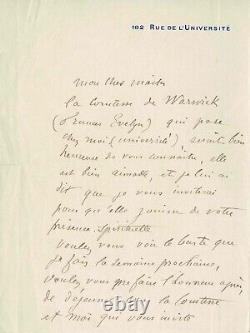 182 RUE DE L'UNIVERSITÉ
mon cher maître
la comtesse de Warwick
( Evelyn) qui pose
chez moi (université) serait bien
heureuse de vous connaître, elle
est bien aimable, et je lui ai
dit que je vous inviterai
pour qu'elle jouisse de votre
présence, spirituelle
voulez vous voir le buste que
je fais la semaine prochaine,
voulez vous me faire l'honneur après
de déjeuner avec la comtesse
et moi qui vous invite